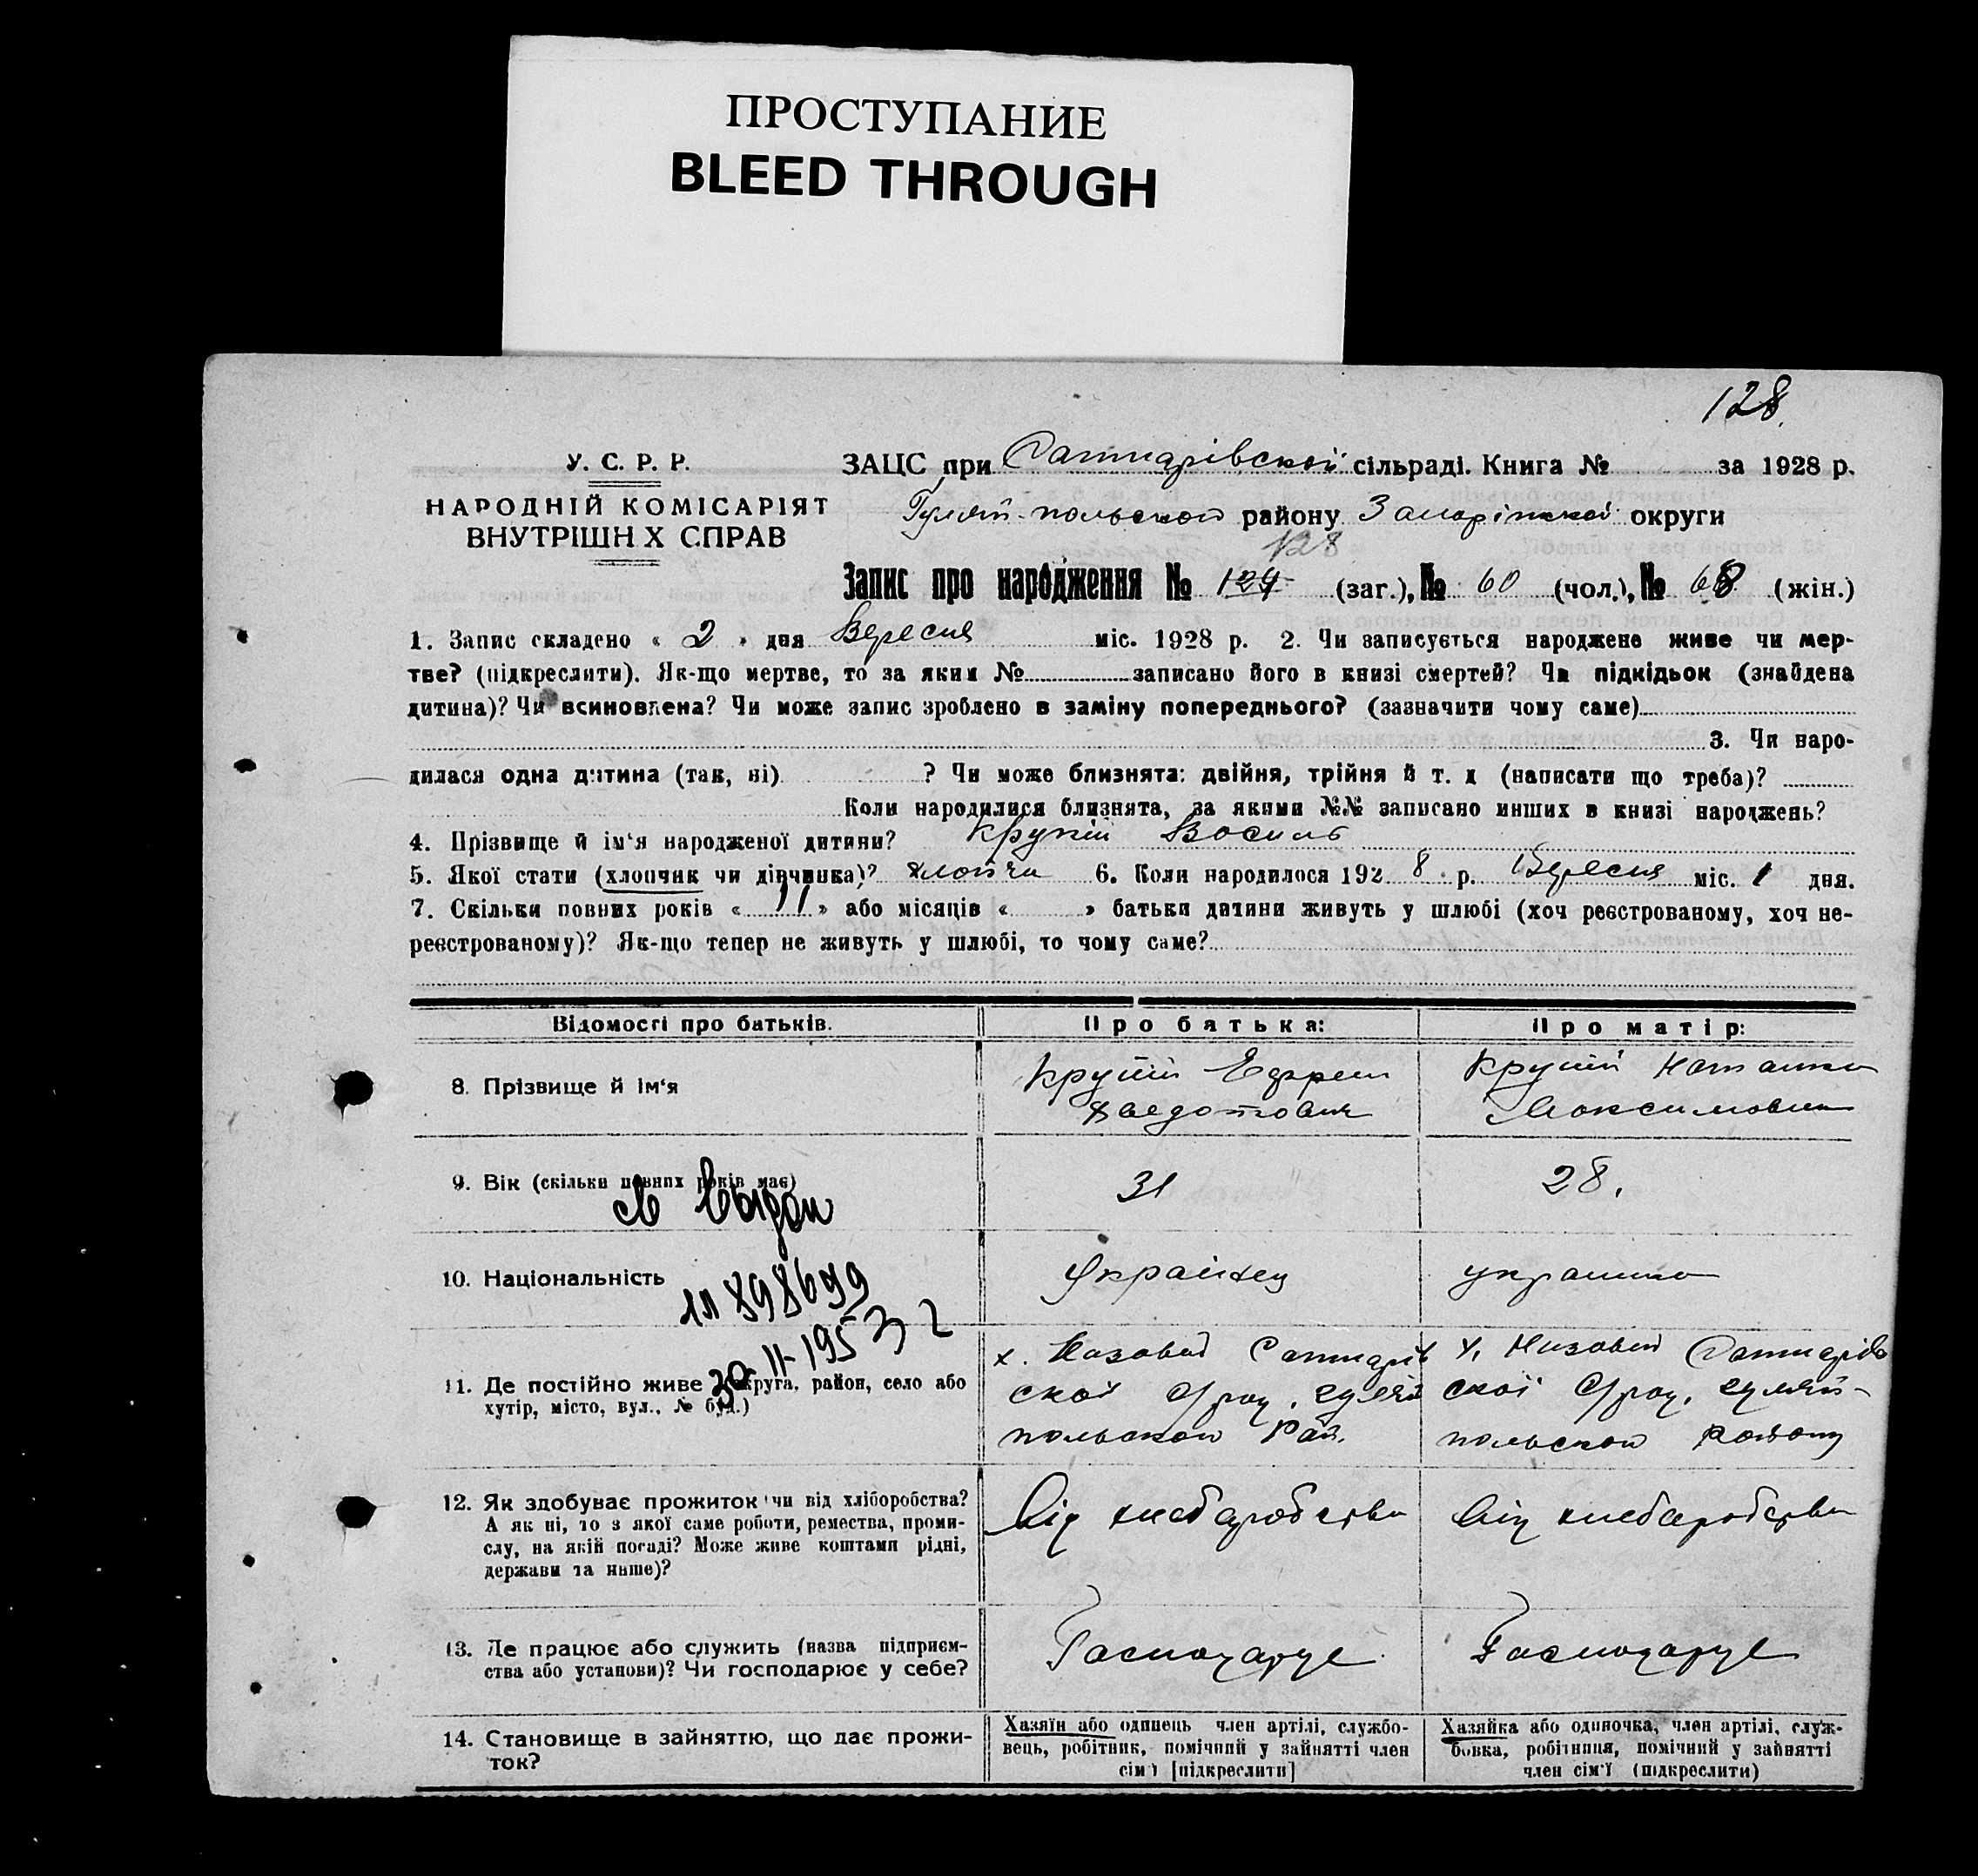 ПРОСТУПАНИЕ
BLEED THROUGH
128.
У. С. Р. Р.
НАРОДНІЙ КОМІСАРІЯТ
ВНУТРІШН Х СПРАВ
ЗАЦС при сільраді. Книга № за 1928 р.
Гуляй-польской району Запоріжскої округи
128
Запис про народження № 124 (заг.), № 60 (чол.), № 68 (жін.)
1. Запис складено « 2 » дня Вересня міс. 1928 р. 2. Чи записується народжене живе чи мер-
тве? (підкреслити). Як-що мертве, то за яким № записано його в книзі смертей? Чи підкідьок (знайдена
дитина)? Чи всиновлена? Чи може запис зроблено в заміну попереднього? (зазначити чому саме)
3. Чи наро-
дилася одна дитина (так, ні) ? Чи може близнята: двійня, трійня й т. д (написати що треба)?
Коли народилися близнята, за якими №№ записано инших в книзі народжень?
4. Прізвище й ім'я народженої дитини? Крупій Василь
5. Якої стати (хлопчик чи дівчинка)? хлопчи 6. Коли народилося 192 8 р. Вересня міс. 1 дня.
7. Скільки повних років « 11 » або місяців « » батьки дитини живуть у шлюбі (хоч реєстрованому, хоч не-
реєстрованому)? Як-що тепер не живуть у шлюбі, то чому саме?
Відомості про батьків. Про батька: Про матір:
8. Прізвище й ім'я
Крупій Ефрем
Хведотович
Крупій Наталка
Максимовна
9. Вік (скільки повних років має) 31 28.
св выдан
10. Національність Українец украинка
1л 898699
30-11-1953 г
11. Де постійно живе (округа, район, село або
хутір, місто, вул., № буд.)
х. Низовий
ской с/рад. гуляй
польской рай.
х. Низовий
скої с/рад. гуляй-
польской району
12. Як здобуває прожиток чи від хліборобства?
А як ні, то з якої саме роботи, ремества, проми-
слу, на якій посаді? Може живе коштами рідні,
держави та инше)?
Від хлебаробства
Від хлебаробства
13. Де працює або служить (назва підприєм-
ства або установи)? Чи господарює у себе?
Гасподарує
Гасподарує
14. Становище в зайняттю, що дає прожи-
ток?
Хазяїн або одинець член артілі, службо-
вець, робітник, помічний у зайнятті член
сім'ї [підкреслити]
Хазяйка або одиночка, член артілі, служ-
бовка, робітниця, помічний у зайнятті
член сім'ї (підкреслити)